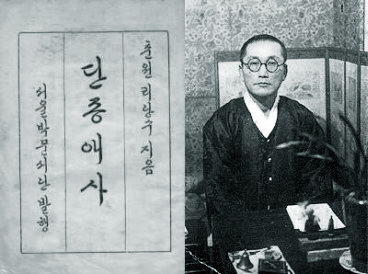 춘원 리광수 지음
단종애사
박문서관 발행